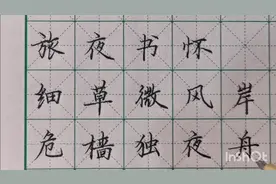 旅夜书怀
细草微风岸
危樯独夜舟
InShot